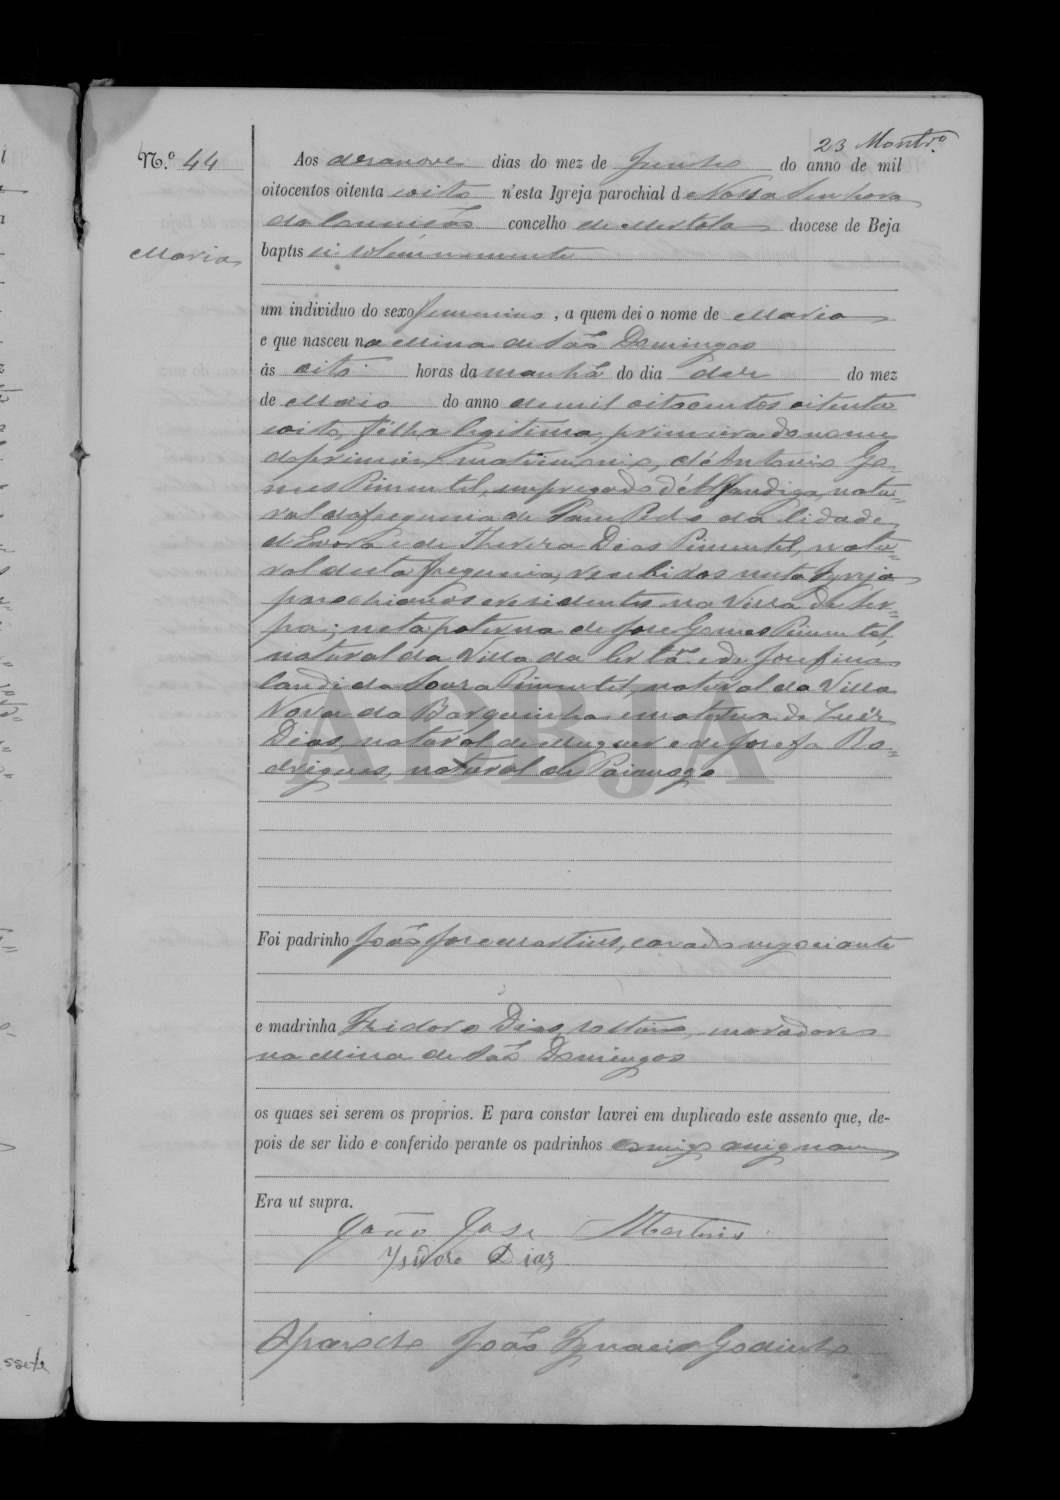 23 Montr.º
N.º 44
Aos desanove dias do mez de Junho do anno de mil
oitocentos oitenta eoito n'esta Igreja parochial de Nossa Senhora
da Conceição concelho de Mertola diocese de Beja
Maria
baptisei solemnemente
um individuo do sexo femenino, a quem dei o nome de Maria
e que nasceu na Mina de São Domingos
ás oito horas da manhã do dia dez do mez
de Maio do anno de mil oitocentos oitenta
eoito, filha legitima, primeira do nome
deprimeiro matrimonio, d'Antonio Go-
mes Pimentel, empregado d'Alfandiga, natu-
ral dafreguesia de Sam Pedro da Cidade
d'Evora e de Thereza Dias Pimentel, natu-
ral desta freguesia, recebidos nesta Igreja
parochianos eresidentes na Villa de Ser-
pa; neta paterna de Jose Gomes Pimentel,
natural da Villa da Certã e de Josefina
Candida Souza Pimentel, natural da Villa
Nova da Barquinha ematerna de Luiz
Dias, natural de Muguer e de Josefa Ro-
drigues, natural de Paimogo
ADBJA
Foi padrinho João Jose Martins, casado negociante
e madrinha Izidoro Dias, solteiro, moradores
na Mina de São Domingos
os quaes sei serem os proprios. E para constar lavrei em duplicado este assento que, de-
pois de ser lido e conferido perante os padrinhos comigo assignam
Era ut supra.
João Jose Martins
Ysidoro Diaz
O parocho João Ignacio Godinho